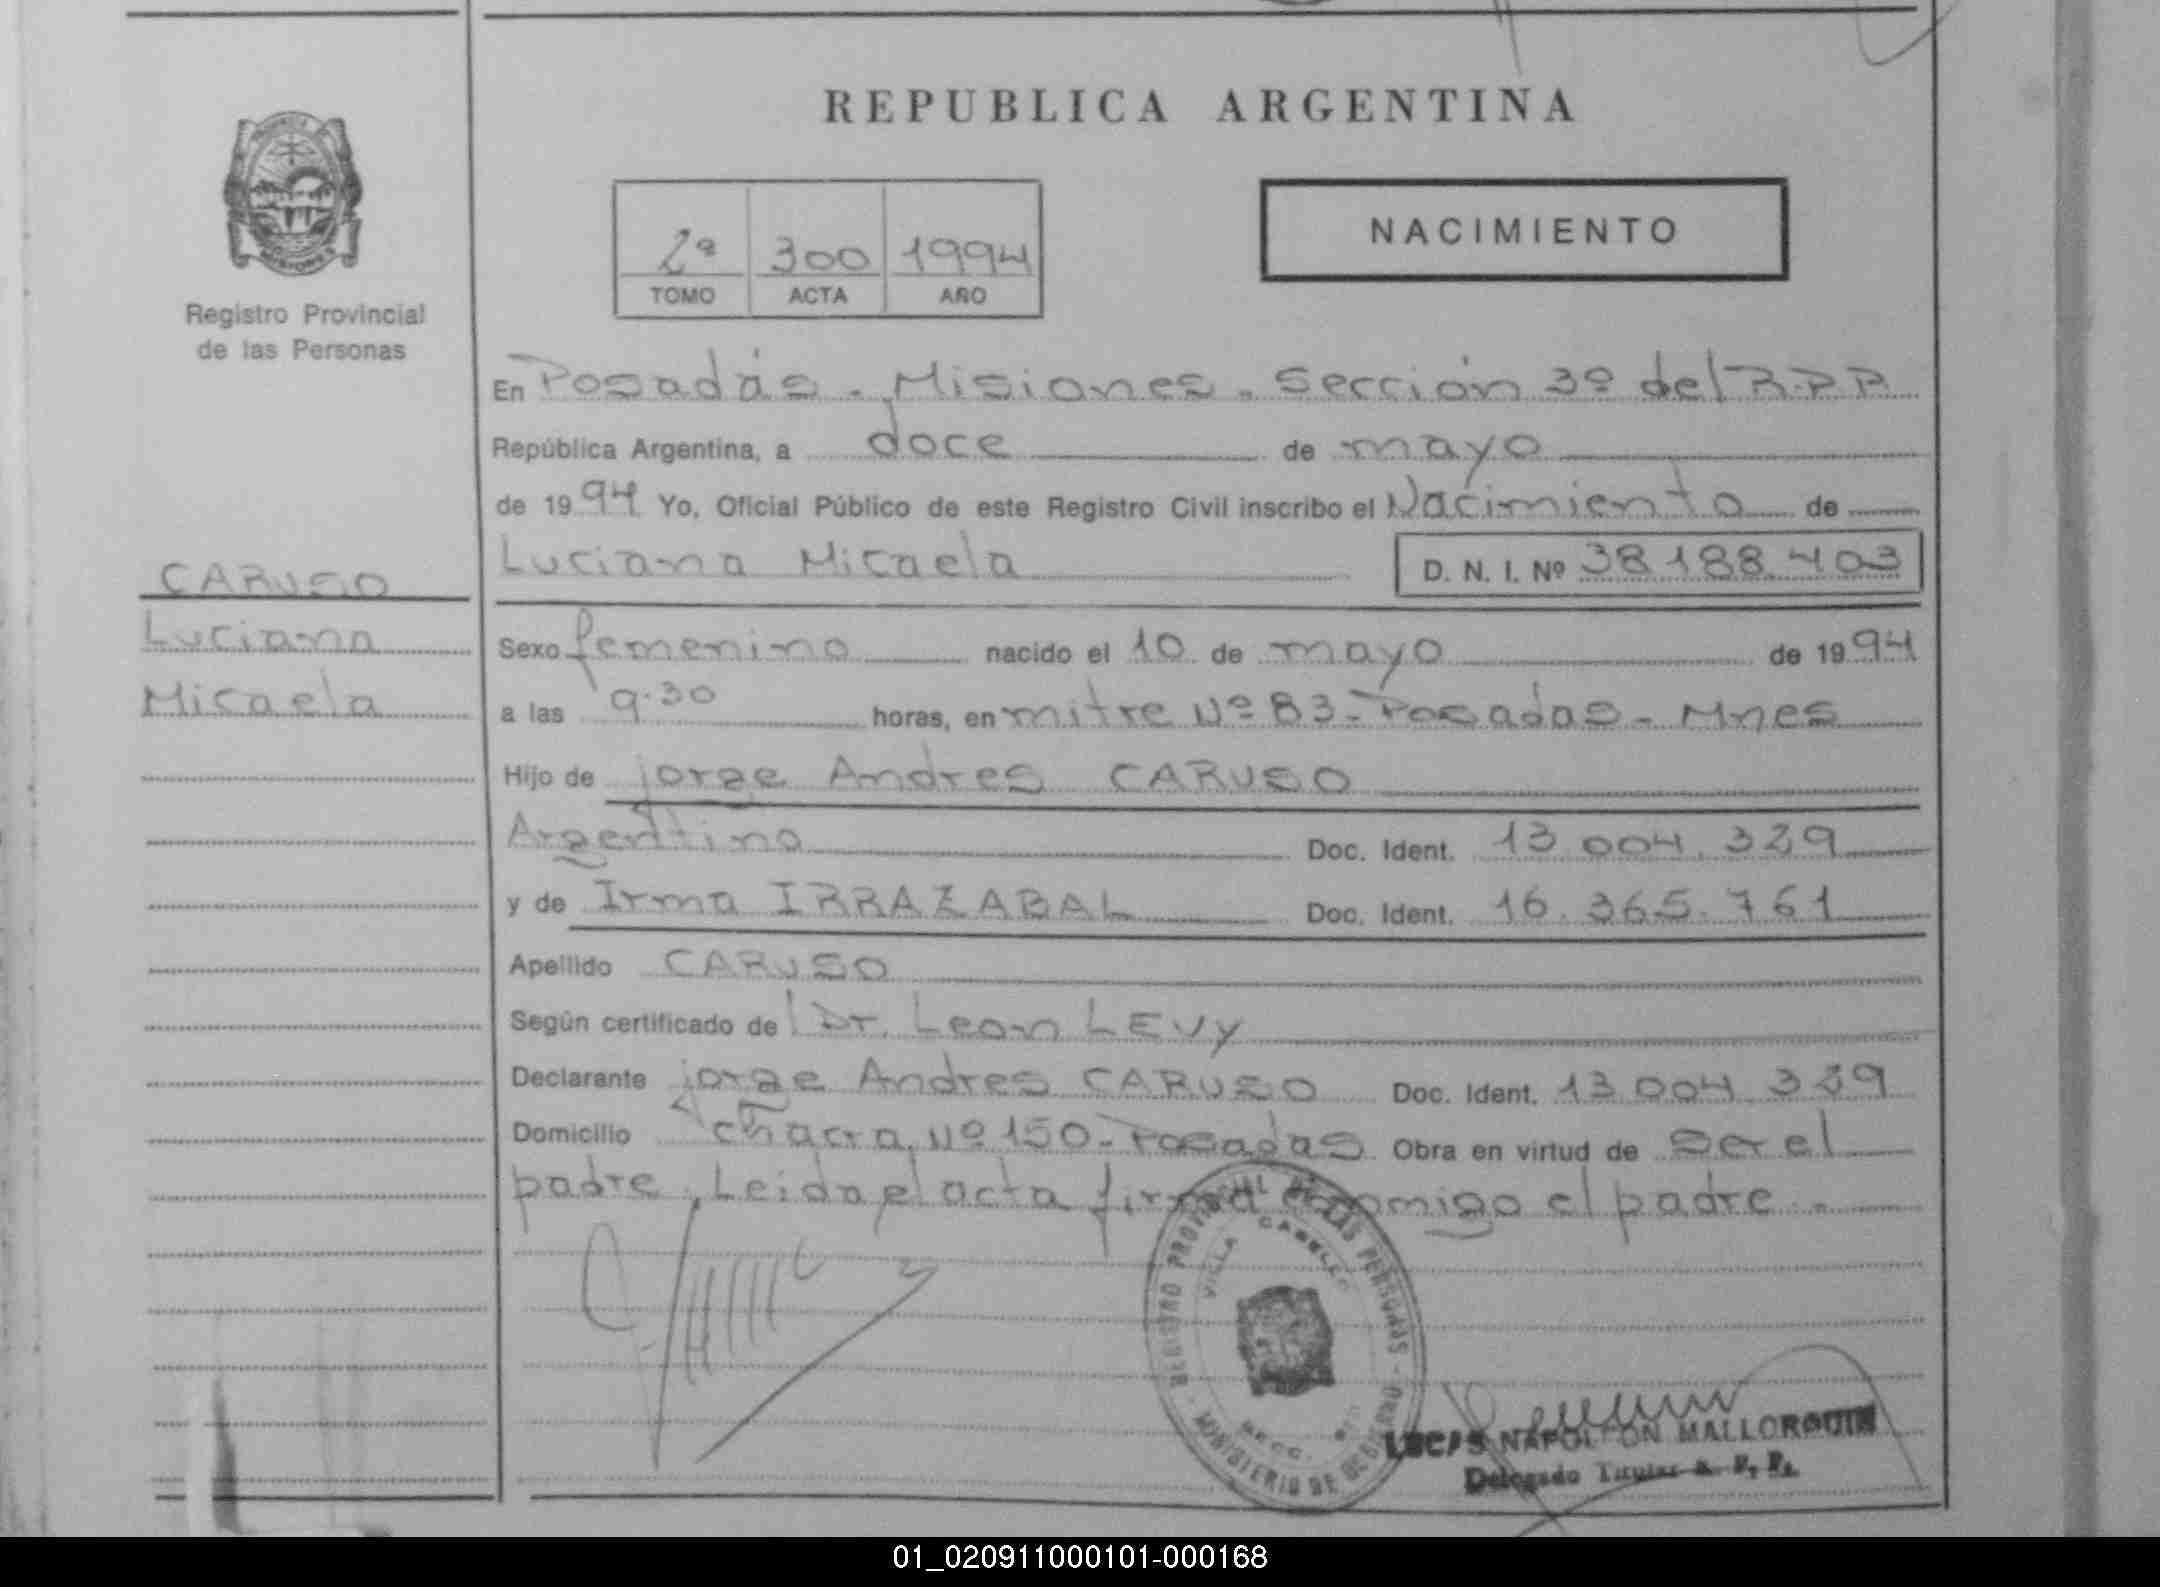 REPUBLICA ARGENTINA
NACIMIENTO
2ª 300 1994
TOMO ACTA AÑO
MISIONES
Registro Provincial
de las Personas
En Posadas - Misiones - Sección 3º del R.P.P.
República Argentina, a doce de mayo
de 1994 Yo, Oficial Público de este Registro Civil inscribo el Nacimiento de
Luciana Micaela D. N. I. Nº 38.188.403
CARUSO
Luciana
Micaela
Sexo femenino nacido el 10 de mayo de 1994
a las 9.30 horas, en mitre Nº 83 - Posadas - Mnes
Hijo de jorge Andres CARUSO
Argentino Doc. Ident. 13.004.329
y de Irma IRRAZABAL Doc. Ident. 16.365.761
Apellido CARUSO
Según certificado de Dr. Leon LEVY
Declarante jorge Andres CARUSO Doc. Ident. 13.004.329
Domicilio chacra Nº 150 - Posadas Obra en virtud de ser el
padre, Leida el acta firma conmigo el padre.-
REGISTRO PROVINCIAL DE LAS PERSONAS - MINISTERIO DE GOBIERNO -
VILLA CABELLO
SECC.
LUCAS NAPOLEON MALLORQUIN
Delegado Titular R. P. P.
01_020911000101-000168